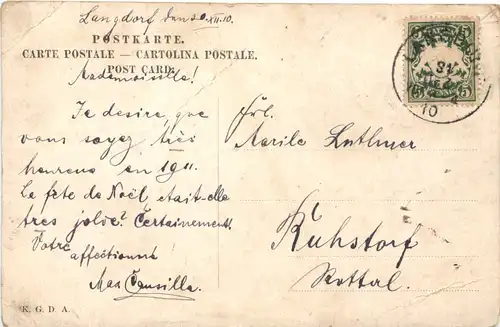 Langdorf den 30.XII.10.
POSTKARTE.
CARTE POSTALE — CARTOLINA POSTALE.
POST CARD.
Mademoiselle!
Je desire, que
vous soyez très
heureuse en 1911.
La fête de Noël, etait-elle
tres jolie? Certainement!
Votre
affectionné
Max
Frl.
Luthner
Ruhstorf
Rottal.
5 PFENNIG 5
31
DEZ
10
K. G. D. A.